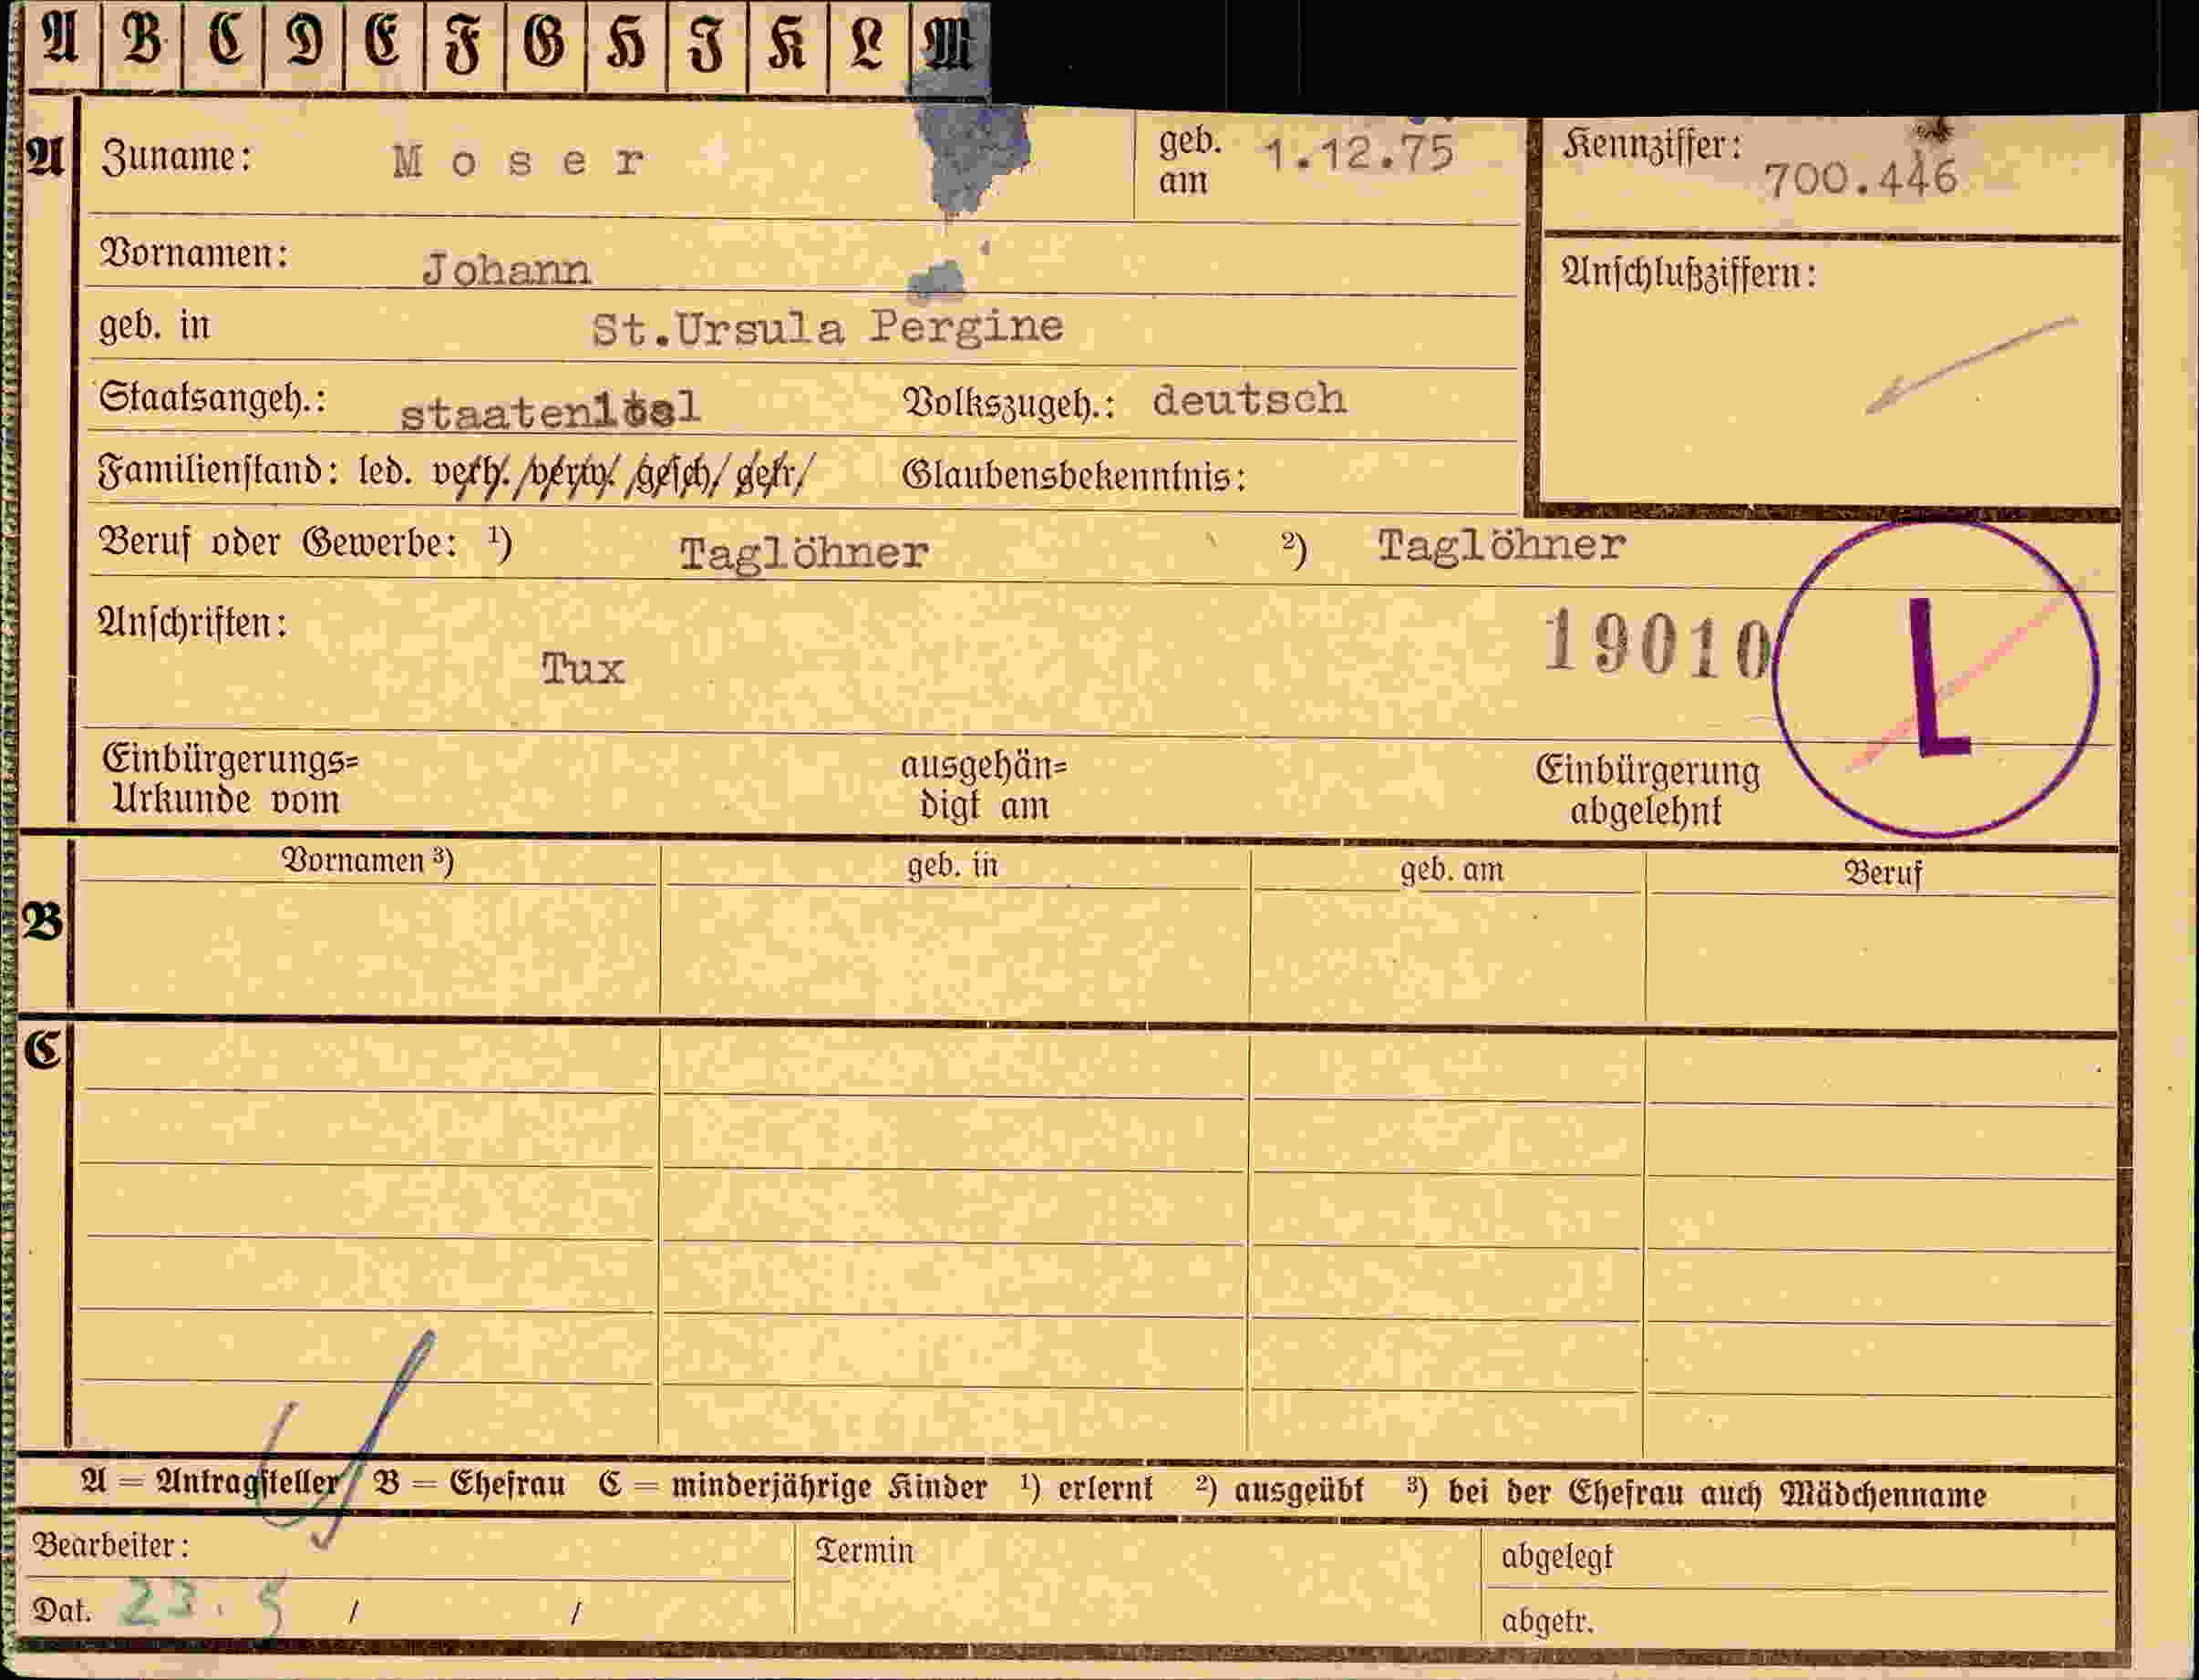 A B C D E F G H I K L M
A Zuname: Moser geb. am 1.12.75 Kennziffer: 700.446
Vornamen: Johann Anschlußziffern:
geb. in St.Ursula Pergine
Staatsangeh.: Volkszugeh.: deutsch
Familienstand: led. verh. verw. gesch. getr. Glaubensbekenntnis:
Beruf oder Gewerbe: ¹) Taglöhner ²) Taglöhner
Anschriften: 19010 L
Tux
Einbürgerungs= ausgehän= Einbürgerung
Urkunde vom digt am abgelehnt
Vornamen ³) geb. in geb. am Beruf
B
C
A = Antragsteller B = Ehefrau C = minderjährige Kinder ¹) erlernt ²) ausgeübt ³) bei der Ehefrau auch Mädchenname
Bearbeiter: Termin abgelegt
Dat. 23. 5 / / abgetr.